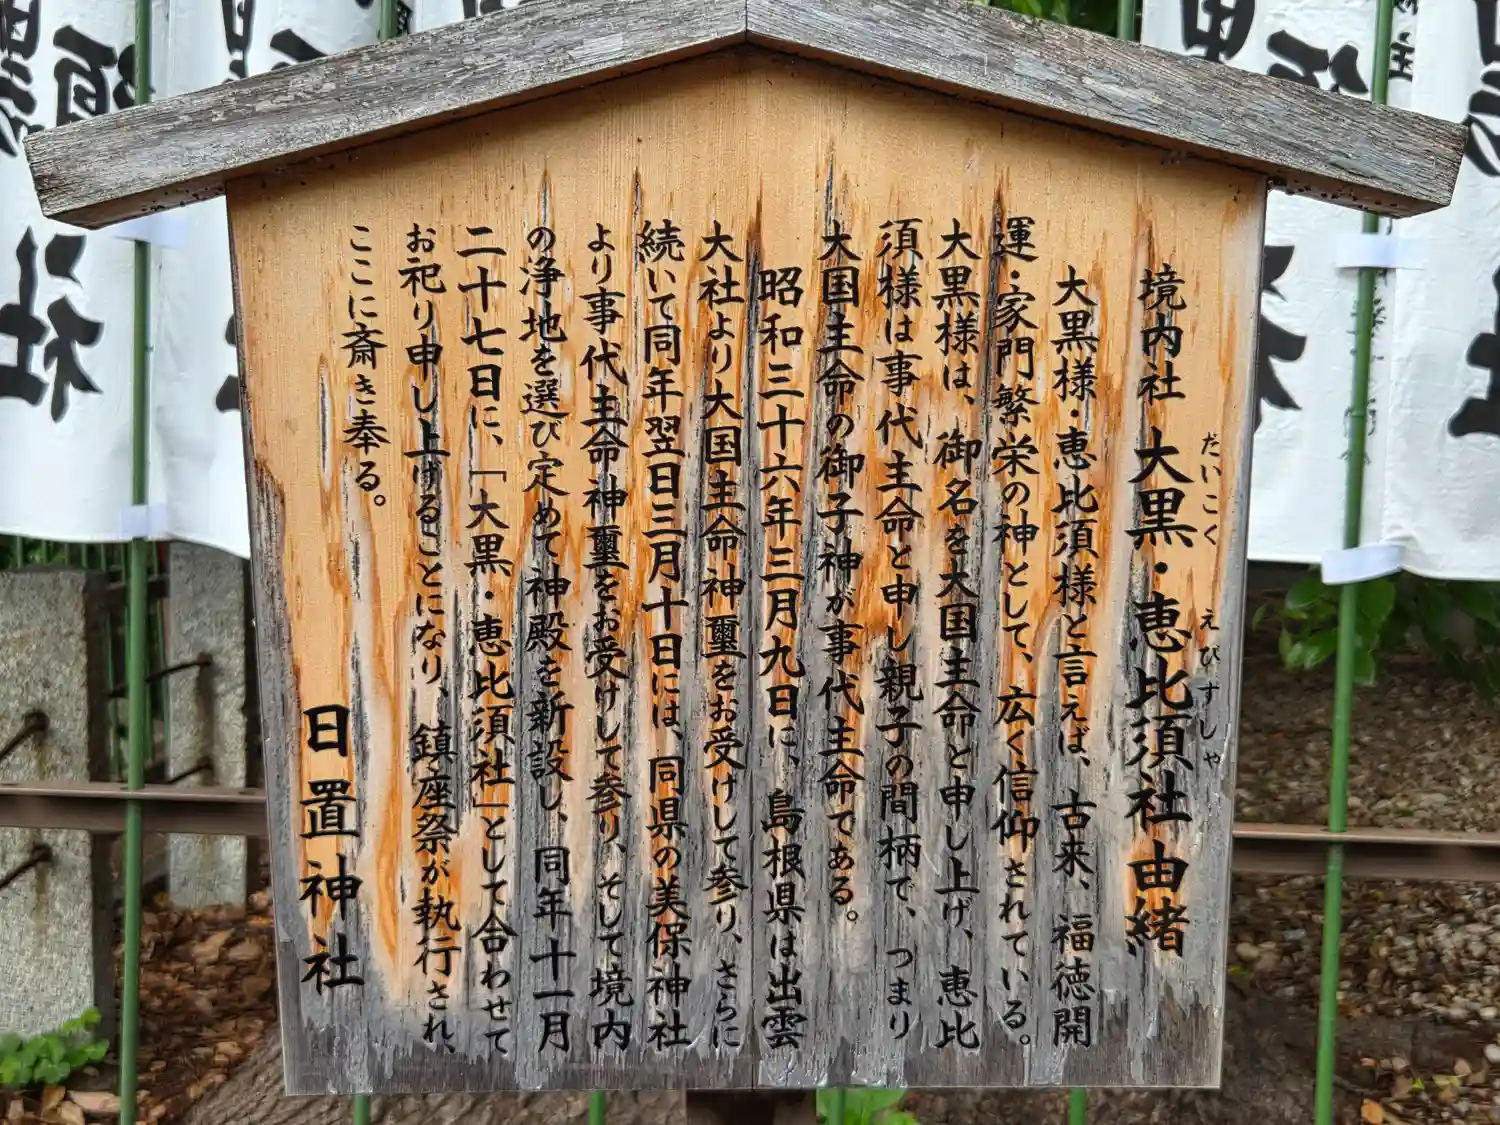 境内社 大黒・恵比須社由緒
だいこく えびすしゃ
大黒様・恵比須様と言えば、古来、福徳開
運・家門繁栄の神として、広く信仰されている。
大黒様は、御名を大国主命と申し上げ、恵比
須様は事代主命と申し親子の間柄で、つまり
大国主命の御子神が事代主命である。
昭和三十六年三月九日に、島根県は出雲
大社より大国主命神璽をお受けして参り、さらに
続いて同年翌日三月十日には、同県の美保神社
より事代主命神璽をお受けして参り、そして境内
の浄地を選び定めて神殿を新設し、同年十一月
二十七日に、「大黒・恵比須社」として合わせて
お祀り申し上げることになり、鎮座祭が執行され、
ここに斎き奉る。
日置神社